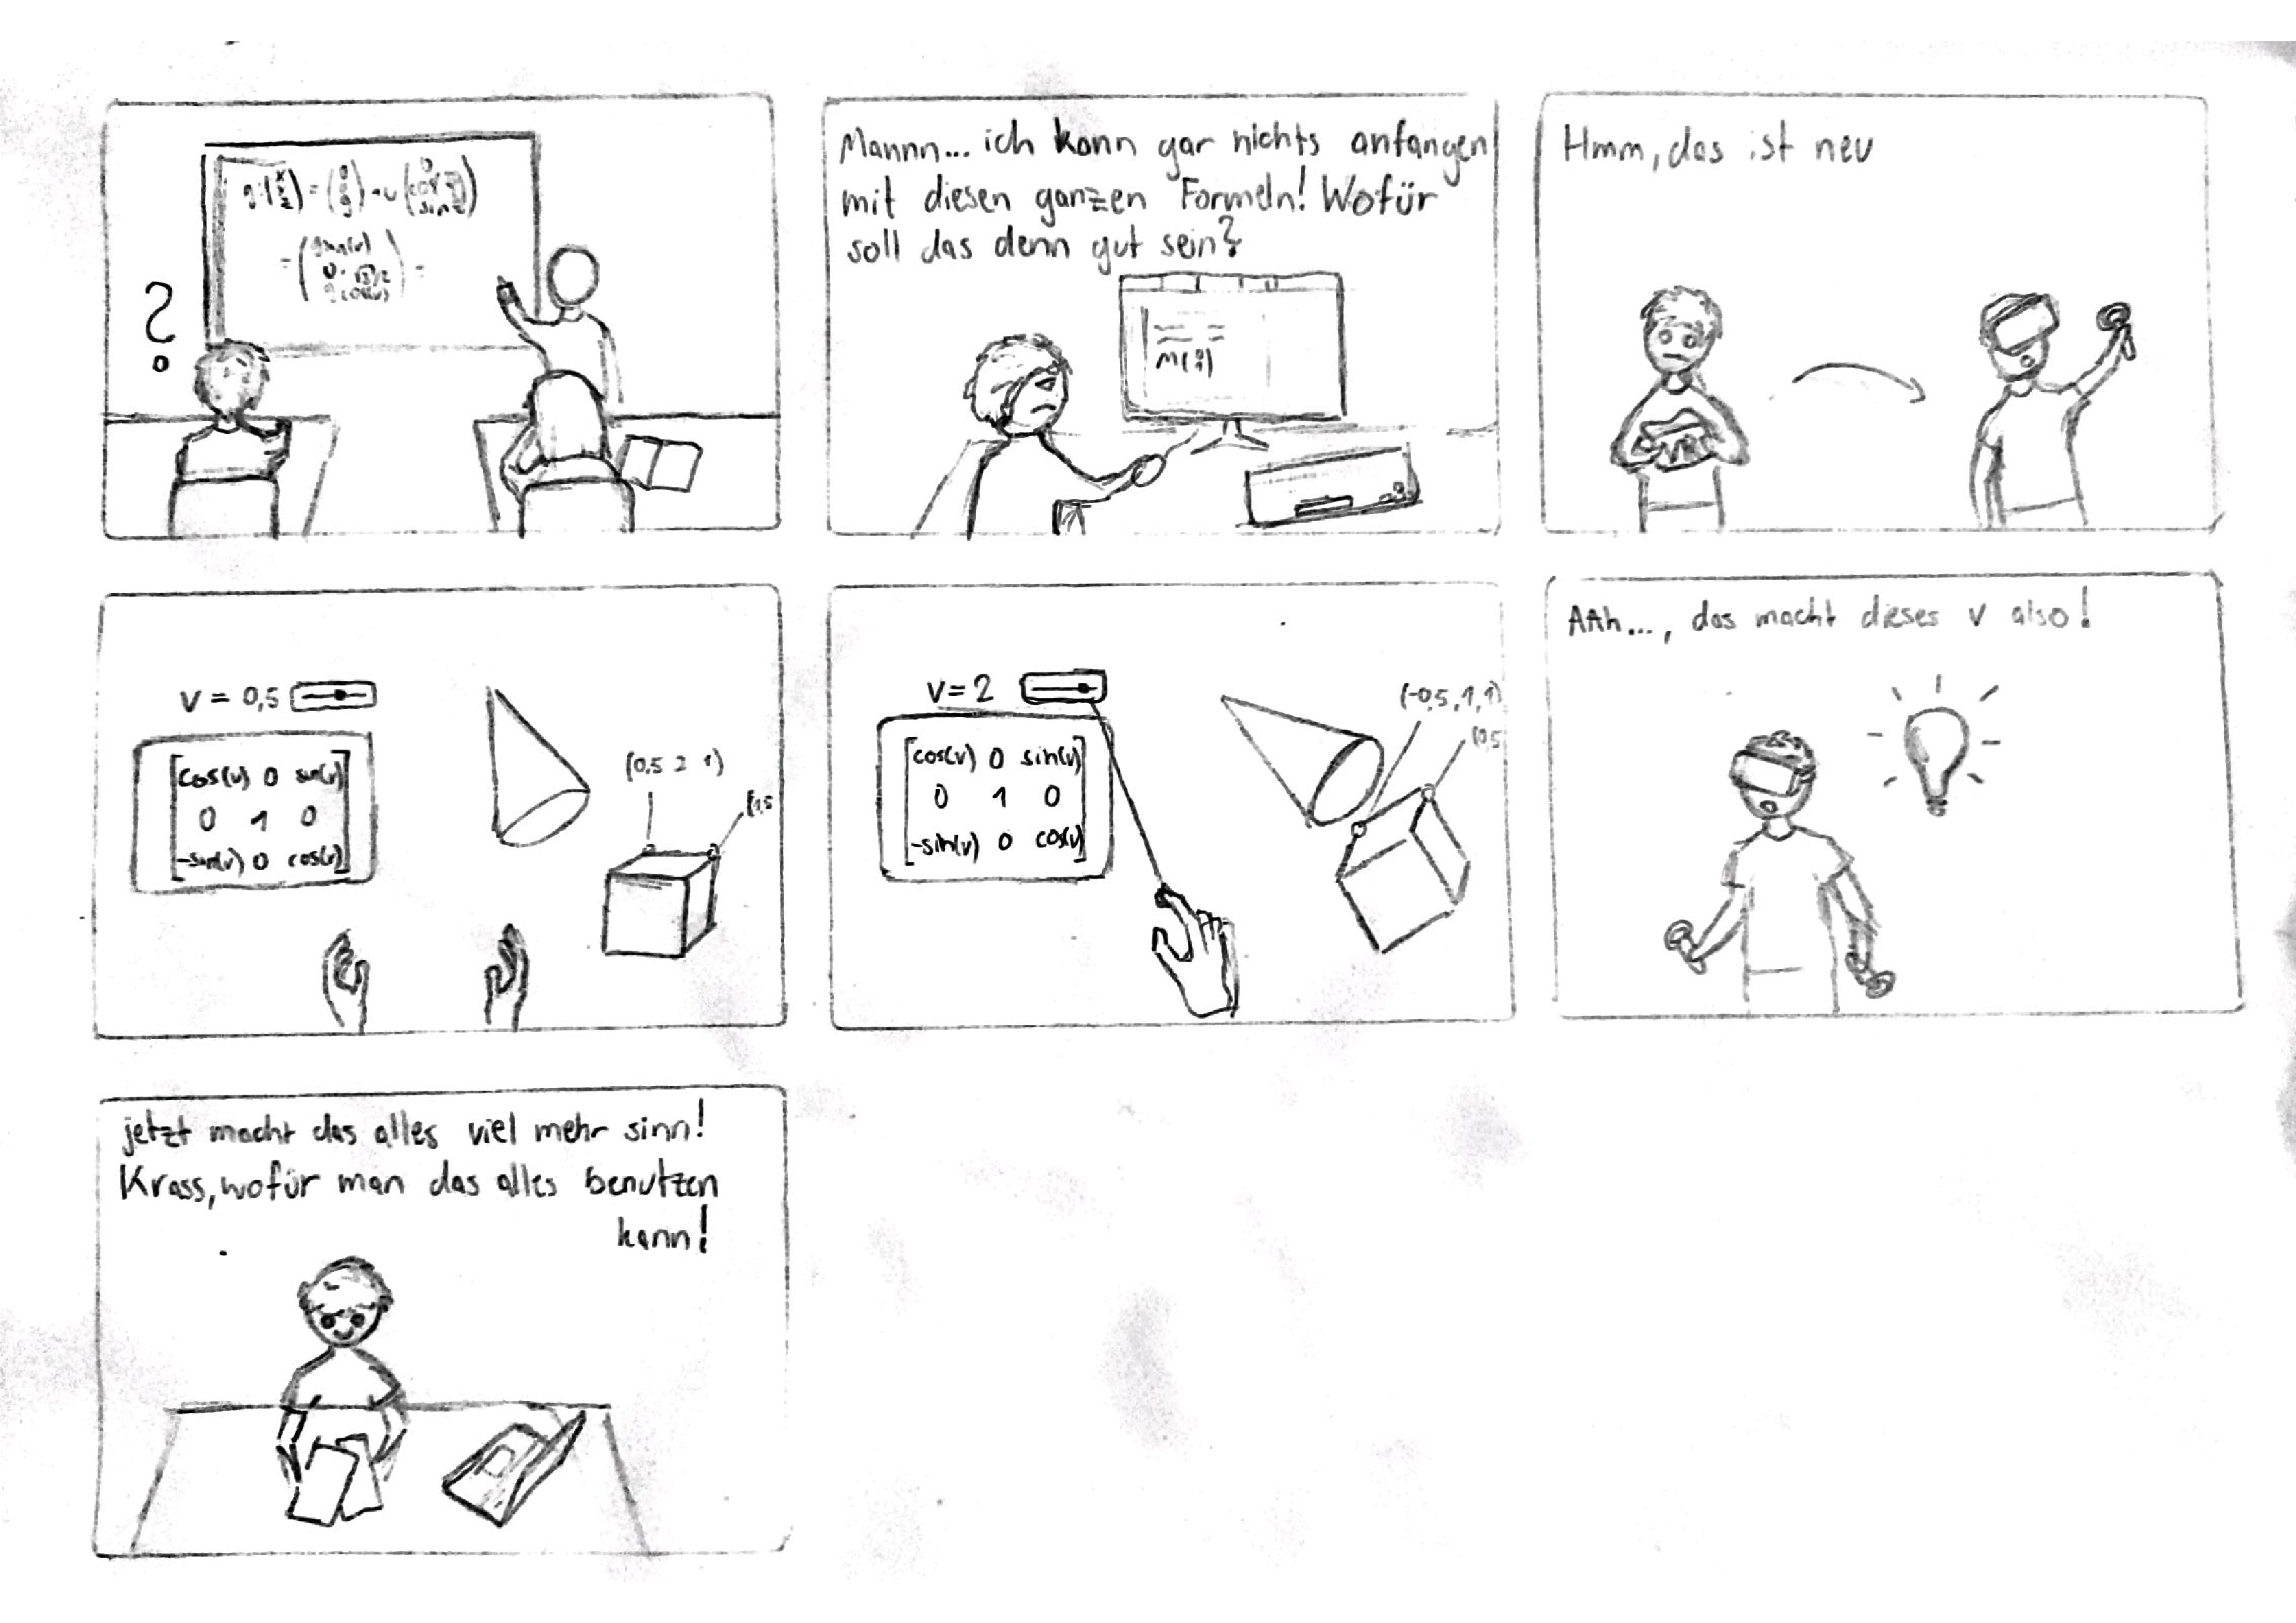 ?
Mannn... ich kann gar nichts anfangen
mit diesen ganzen Formeln! Wofür
soll das denn gut sein?
Hmm, das ist neu
VR
v = 0,5
cos(v) 0 sin(v)
0 1 0
-sin(v) 0 cos(v)
(0,5 2 1)
v=2
cos(v) 0 sin(v)
0 1 0
-sin(v) 0 cos(v)
(-0,5, 1, 1)
(0,5
AAh..., das macht dieses v also!
jetzt macht das alles viel mehr sinn!
Krass, wofür man das alles benutzen
kann!